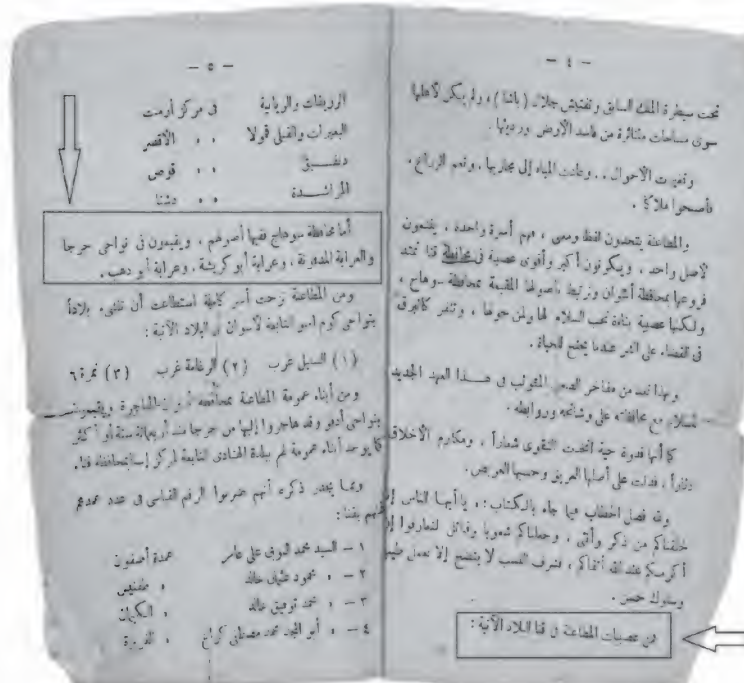 - ٤ -
تحت سيطرة الملك السابق وتفتيش جلال ( باشا ) ، ولم يكن لأهلها
سوى مساحات متناثرة من فاسد الأرض ورديئها .
وتغيرت الأحوال . . وعادت المياه إلى مجاريها . ونعم الزراع .
فأصبحوا ملاكا .
والمطاعنة يتحدون لفظا ومعنى ، فهم أسرة واحدة ، ينتمون
لأصل واحد ، ويكونون أكبر وأقوى عصبية في محافظة قنا تمتد
فروعها بمحافظة أسوان وترتبط بأصولها المقيمة بمحافظة سوهاج ،
ولكنها عصبية بناءة تحب السلام لها ولمن حولها ، وتنمر كالبرق
في القضاء على الشر عندما يخضع للحياة .
وبهذا تعد من مفاخر الصعيد المتوثب في هذا العهد الجديد
للسلام مع محافظته على وشائجه وروابطه .
كما أنها قدوة حية اتخذت التقوى شعاراً ، ومكارم الأخلاق
دثاراً ، فدلت على أصلها العريق وحسبها العريض .
وقد فصل الخطاب فيما جاء بالكتاب : « يا أيها الناس إنا
خلقناكم من ذكر وأنثى ، وجعلناكم شعوبا وقبائل لتعارفوا إن
أكرمكم عند الله أتقاكم ، فشرف النسب لا يتضح إلا بعمل طيب
وسلوك حسن .
فمن عصبيات المطاعنة في قنا البلاد الآتية :
- ٥ -
الرزيقات والريانية في مركز أرمنت
البعيرات والقبلى قولا ، ، الأقصر
دنفيق ، ، قوص
المراشدة ، ، دشنا
أما محافظة سوهاج ففيها أصولهم ، ويقيمون في نواحى جرجا
والعرابة المدفونة ، وعرابة أبو كريشة ، وعرابة أبو دهب .
ومن المطاعنة نزحت أسر كاملة استطاعت أن تنشىء بلاداً
بنواحى كوم امبو التابعة لأسوان في البلاد الآتية :
(١) السيل غرب (٢) الرغامة غرب (٣) نمرة ٦
ومن أبناء عمومة المطاعنة بمحافظة ويقيمون
بنواحى أدفو وقد هاجروا إليها من جرجا منذ أربعمائة سنة أو أكثر
كما يوجد أبناء عمومة لهم ببلدة الهنادى التابعة لمركز إسنا بمحافظة قنا .
ومما يجدر ذكره أنهم ضربوا الرقم القياسى في عدد عمدهم
بقنا :
١ - السيد محمد على عامر عمدة أصفون
٢ - ، محمود عثمان خالد ، طفنيس
٣ - ، محمد توفيق خالد ، الكيمان
٤ - ، أبو المجد محمد مصطفى ،